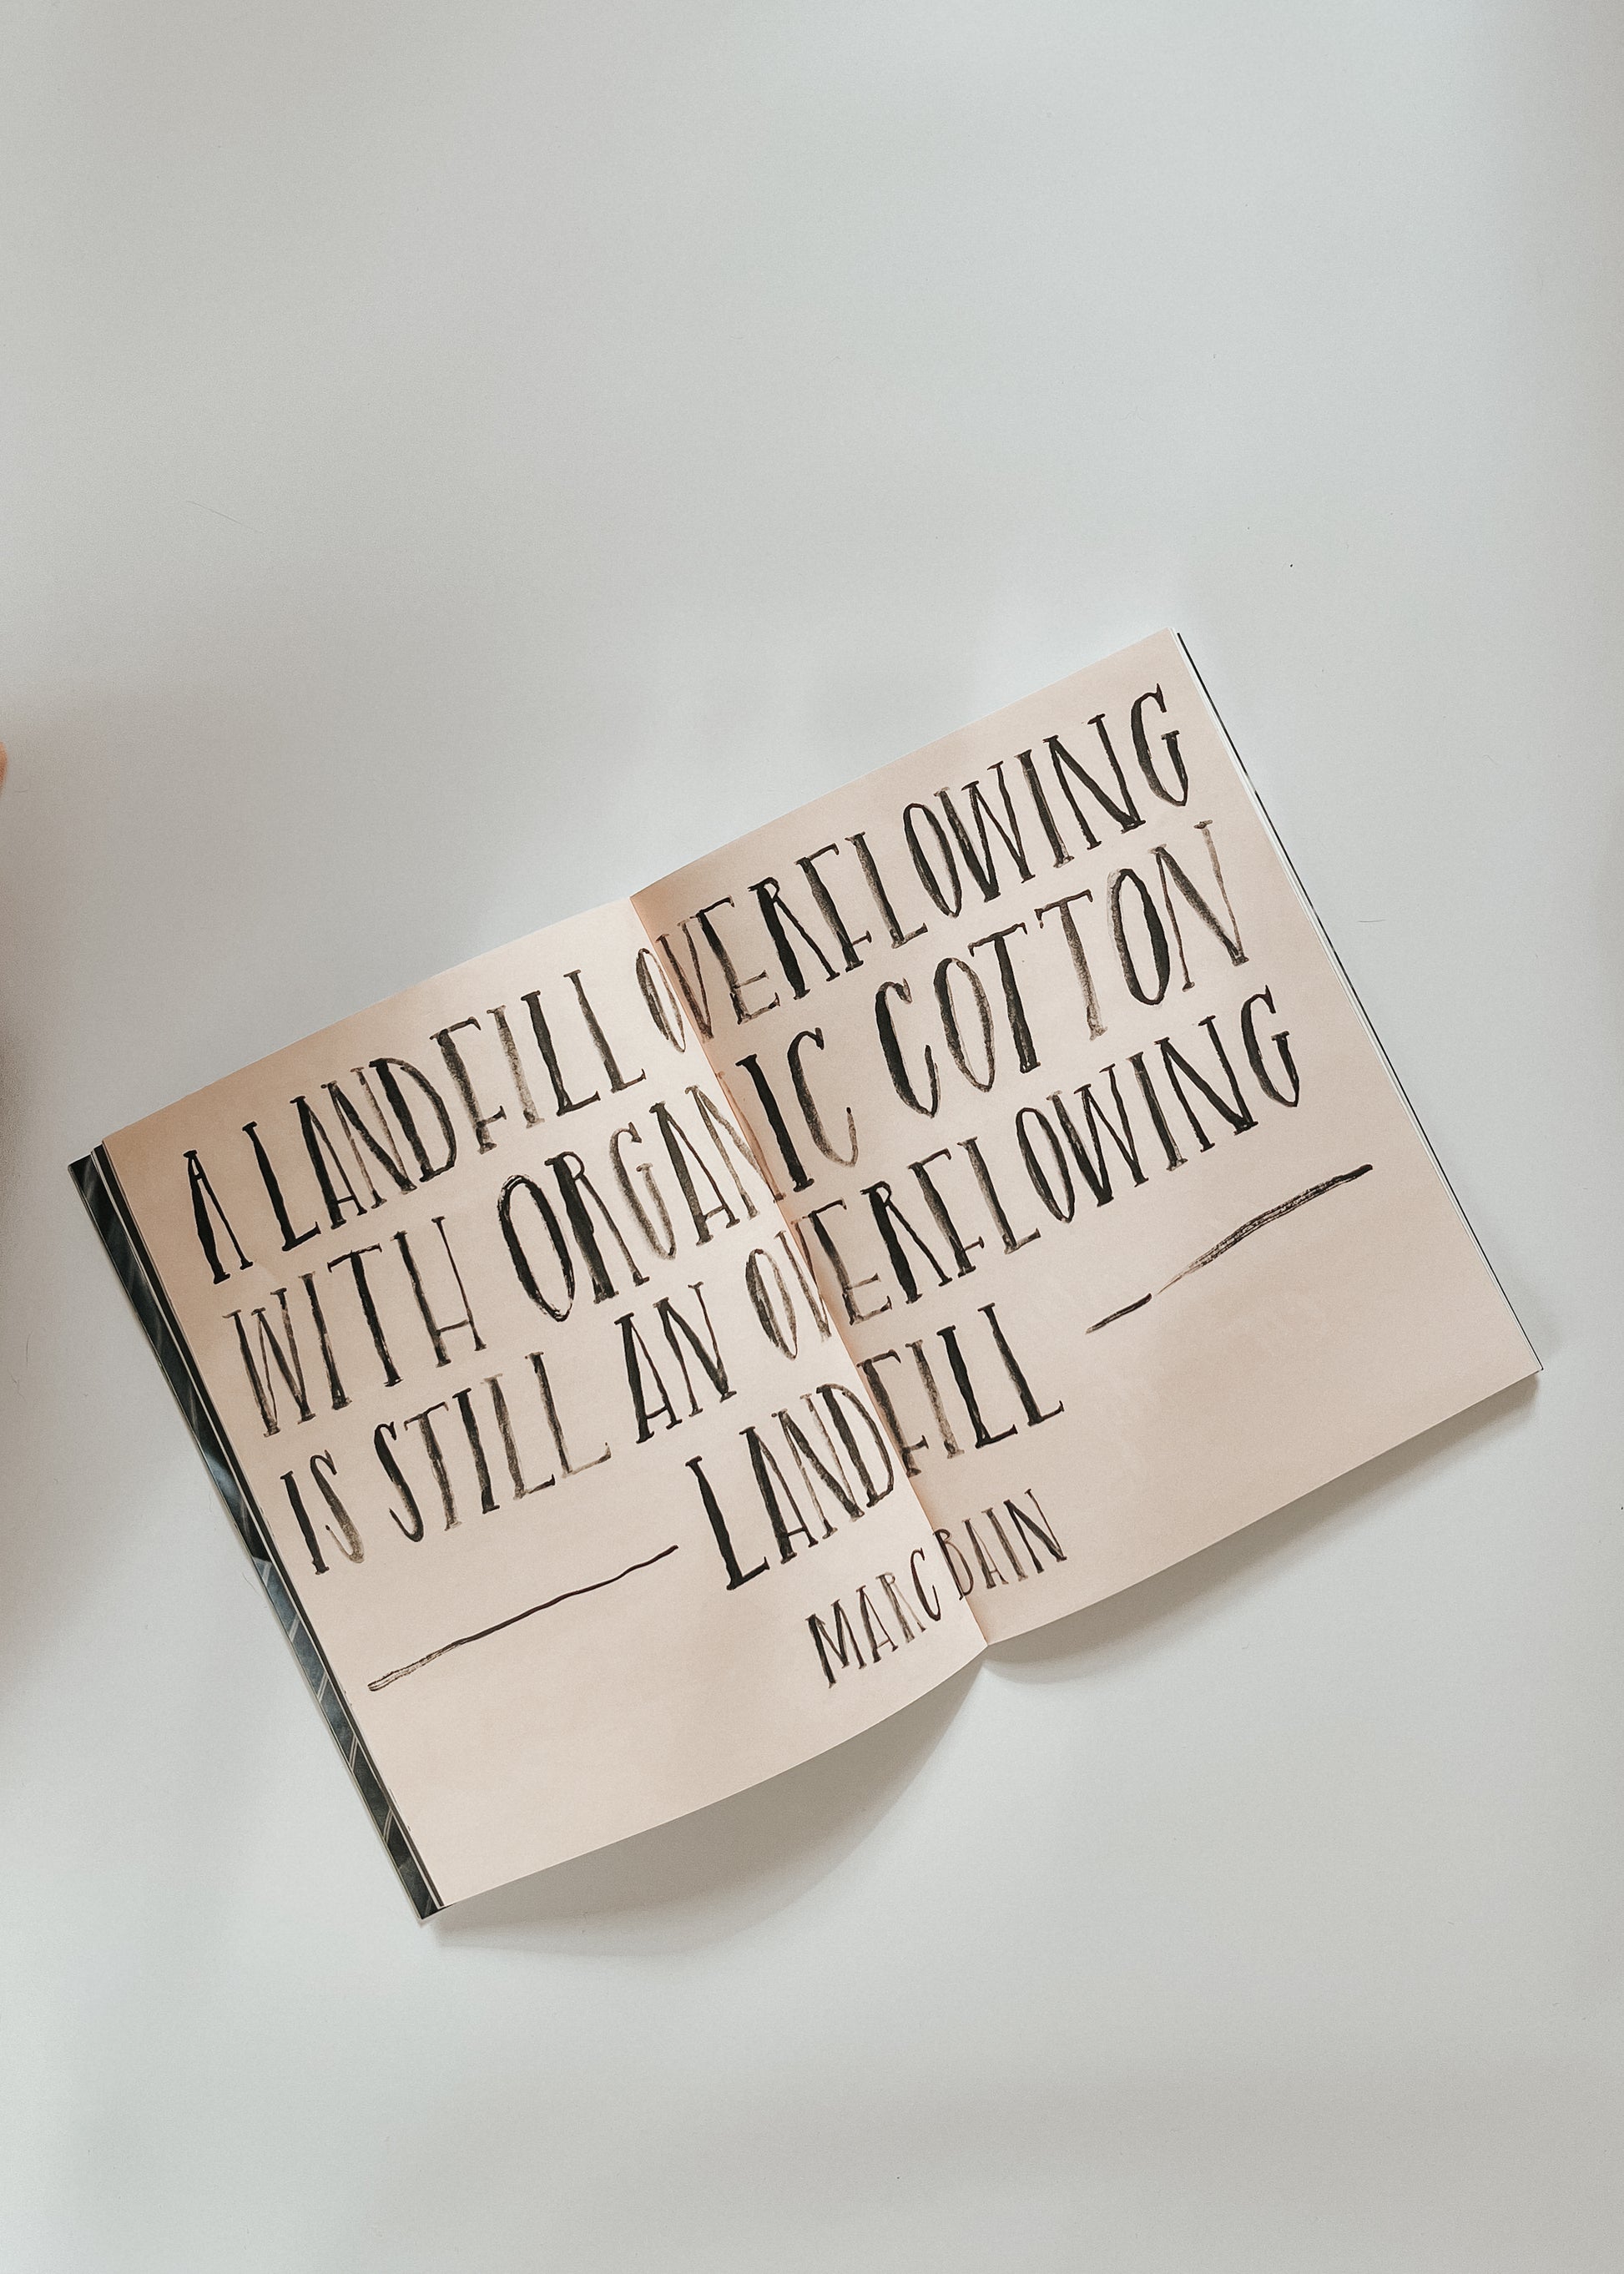 A LANDFILL OVERFLOWING
WITH ORGANIC COTTON
IS STILL AN OVERFLOWING
LANDFILL
MARC BAIN